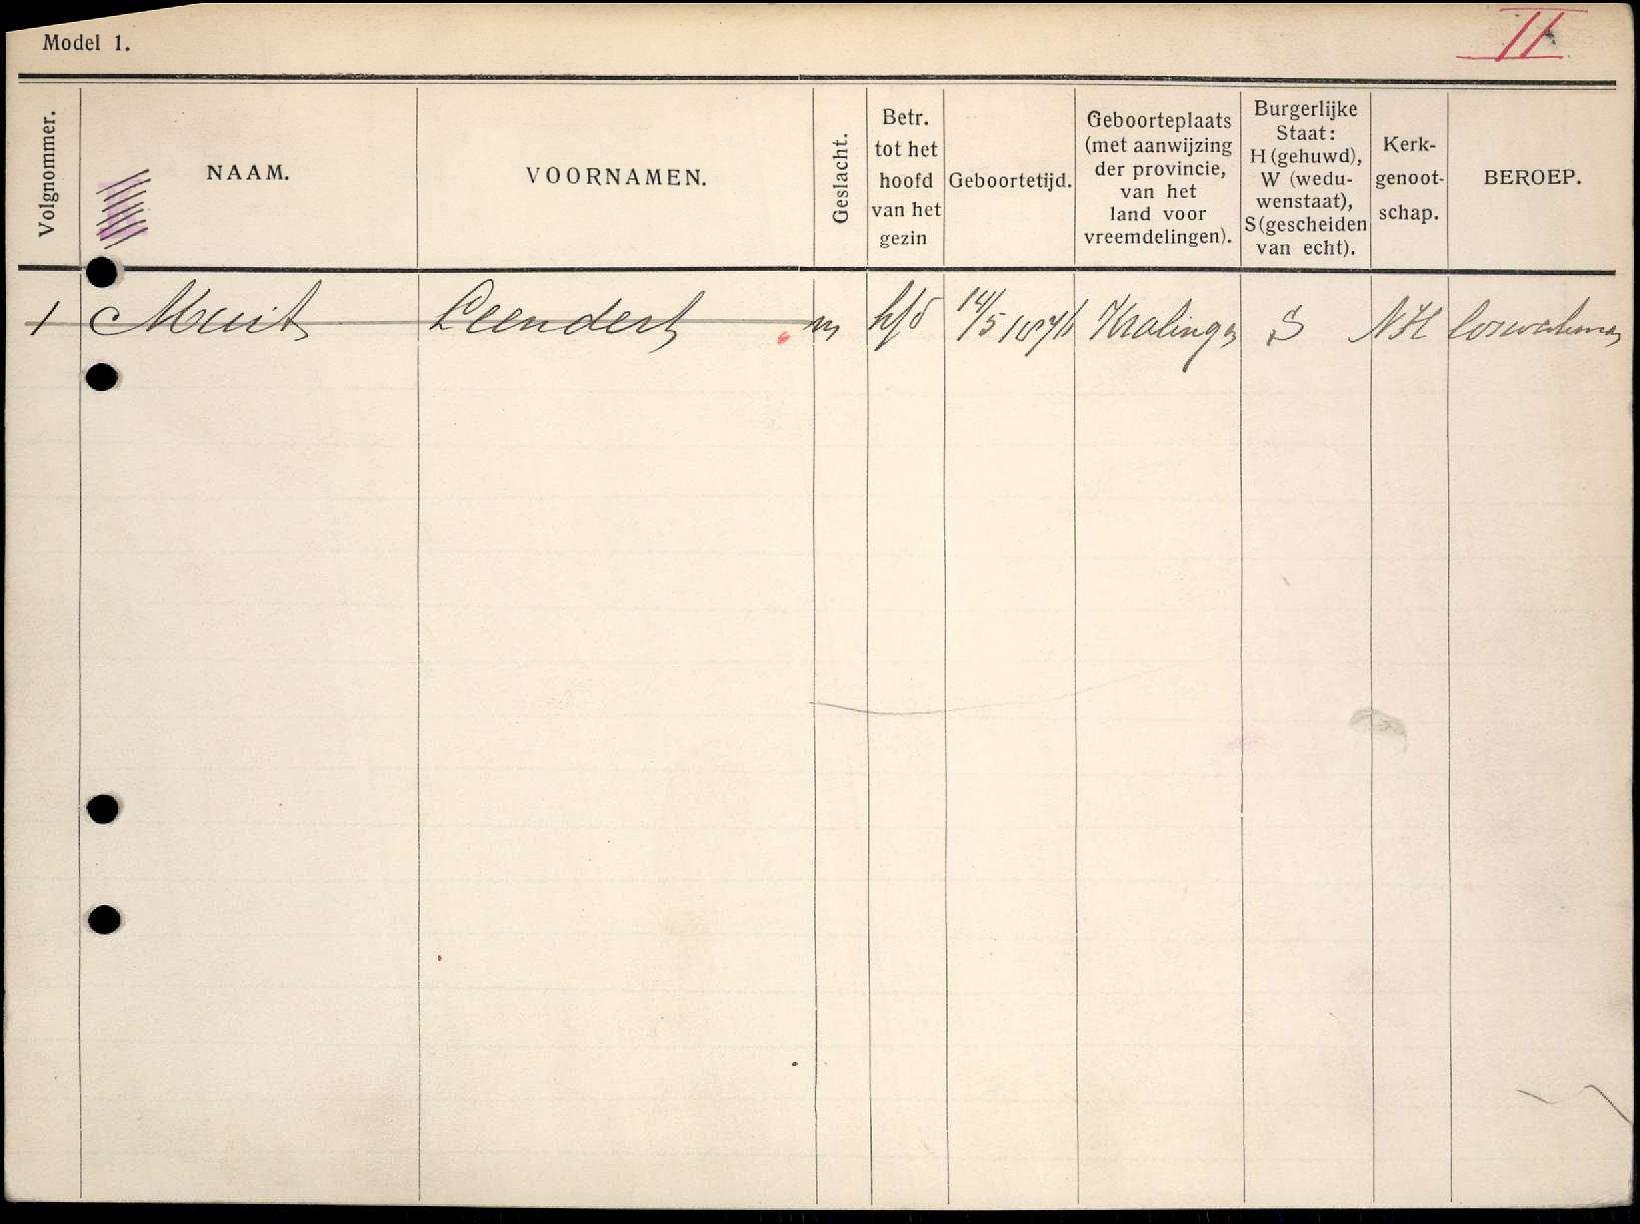 Model 1.
II
Volgnommer.
NAAM.
VOORNAMEN.
Geslacht.
Betr.
tot het
hoofd
van het
gezin
Geboortetijd.
Geboorteplaats
(met aanwijzing
der provincie,
van het
land voor
vreemdelingen).
Burgerlijke
Staat:
H (gehuwd),
W (wedu-
wenstaat),
S (gescheiden
van echt).
Kerk-
genoot-
schap.
BEROEP.
1 Muit Leendert m hfd 14/5 Kralingen S NH